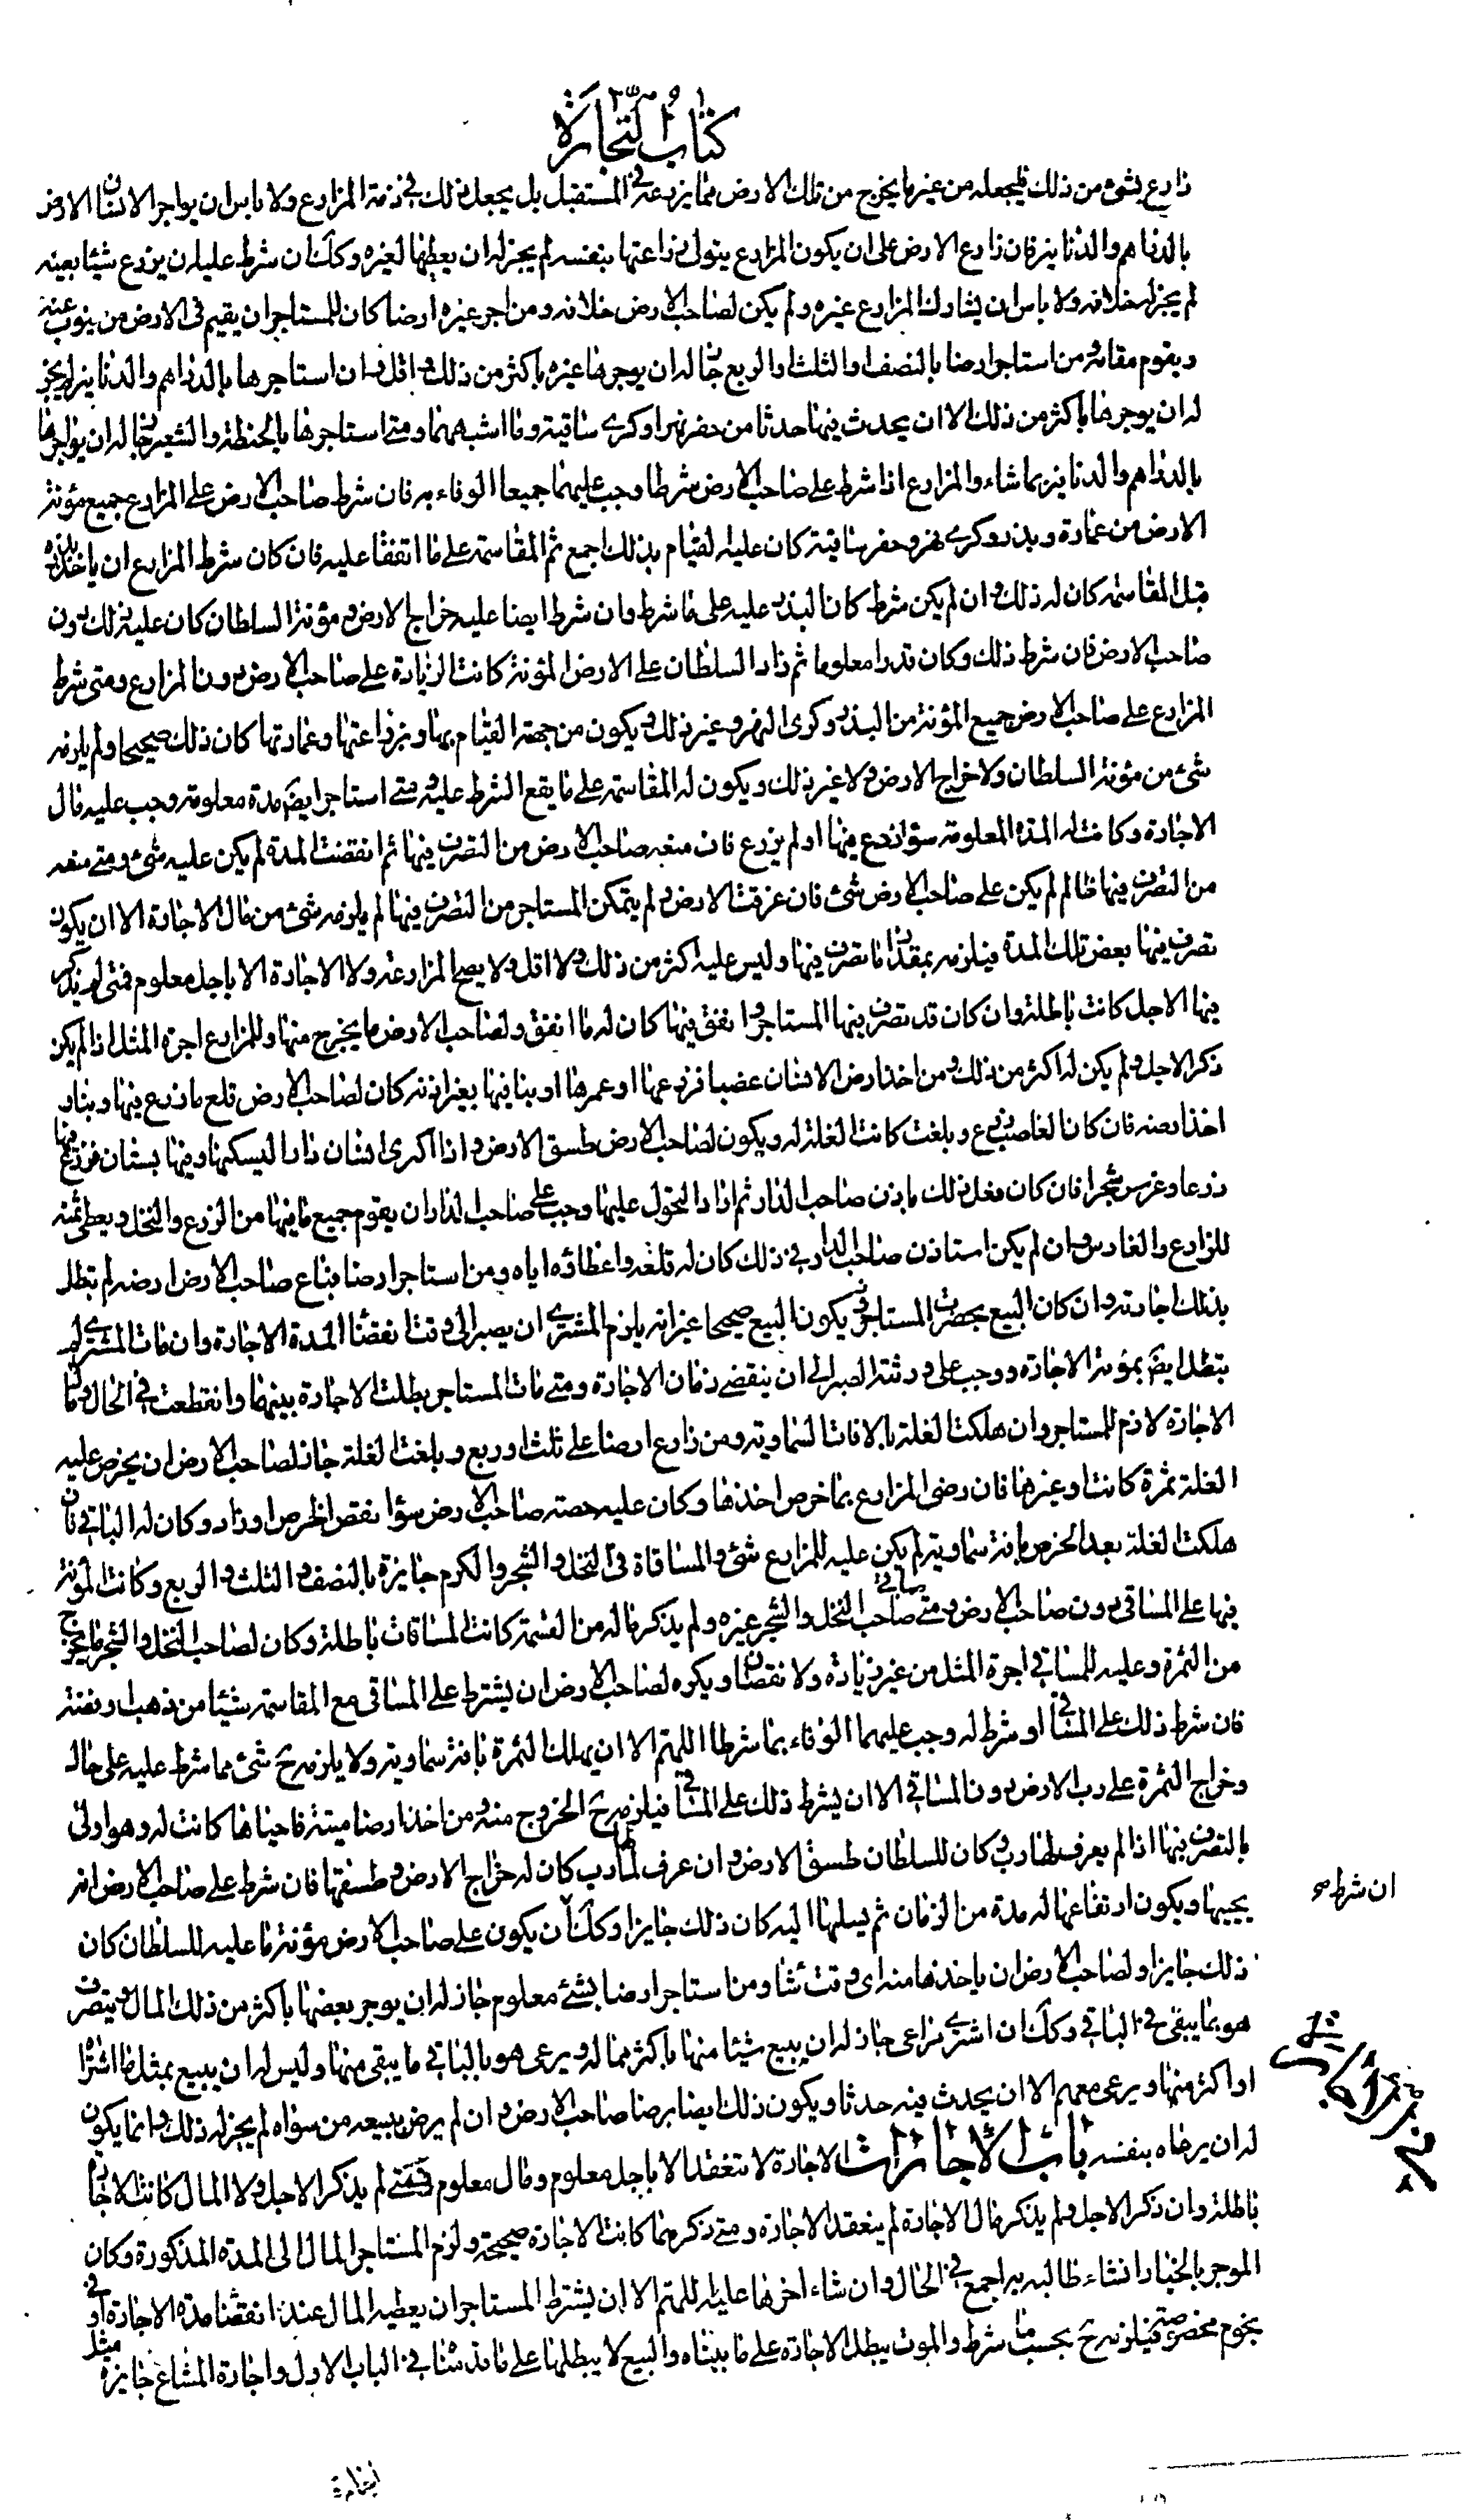 كتاب التجارة
زارع بشئ من ذلك فليجعله من غير ما يخرج من تلك الارض مما يزرعه في المستقبل بل يجعل ذلك في ذمة المزارع ولا باس ان يواجر الانسان الارض
بالدراهم والدنانير فان زارع الارض على ان يكون المزارع يتولى زراعتها بنفسه لم يجز له ان يعطيها لغيره وكك ان شرط عليه ان يزرع شيئا بعينه
لم يجز له خلافه ولا باس ان يشارك المزارع غيره ولم يكن لصاحب الارض خلافه ومن اجر غيره ارضا كان للمستاجر ان يقيم في الارض من ينوب عنه
ويقوم مقامه ومن استاجر ارضا بالنصف والثلث والربع جاز له ان يوجرها غيره باكثر من ذلك واقل وان استاجرها بالدراهم والدنانير لم يجز
له ان يوجرها باكثر من ذلك الا ان يحدث فيها حدثا من حفر نهر او كرى ساقية وما اشبههما ومتى استاجرها بالحنطة والشعير جاز له ان يواجرها
بالدراهم والدنانير بما شاء والمزارع اذا شرط على صاحب الارض شرطا وجب عليهما جميعا الوفاء به فان شرط صاحب الارض على المزارع جميع مؤنة
الارض من عمارة وبذر وكرى نهر وحفر ساقية كان عليه القيام بذلك اجمع ثم المقاسمة على ما اتفقا عليه فان كان شرط المزارع ان ياخذ بذره
قبل المقاسمة كان له ذلك وان لم يكن شرط كان البذر عليه على ما شرط وان شرط ايضا عليه خراج الارض ومؤنة السلطان كان عليه ذلك دون
صاحب الارض فان شرط ذلك وكان قدرا معلوما ثم زاد السلطان على الارض المؤنة كانت الزيادة على صاحب الارض دون المزارع ومتى شرط
المزارع على صاحب الارض جميع المؤنة من البذر وكرى النهر وغير ذلك ويكون من جهته القيام بها وبزراعتها وعمارتها كان ذلك صحيحا ولم يلزمه
شئ من مؤنة السلطان ولا خراج الارض ولا غير ذلك ويكون له المقاسمة على ما يقع الشرط عليه ومتى استاجر ايضا مدة معلومة وجب عليه مال
الاجارة وكانت له المدة المعلومة سواء زرع فيها او لم يزرع فان منعه صاحب الارض من التصرف فيها ثم انقضت المدة لم يكن عليه شئ ومتى منعه
من التصرف فيها ظالم لم يكن على صاحب الارض شئ فان غرقت الارض ولم يتمكن المستاجر من التصرف فيها لم يلزمه شئ من مال الاجارة الا ان يكون
تصرف فيها بعض تلك المدة فيلزمه بمقدار ما تصرف فيها وليس عليه اكثر من ذلك ولا اقل ولا يصح المزارعة ولا الاجارة الا باجل معلوم فمتى لم يذكر
فيها الاجل كانت باطلة وان كان قد تصرف فيها المستاجر وانفق فيها كان له ما انفق ولصاحب الارض ما يخرج منها وللمزارع اجرة المثل اذا لم يكن
ذكر الاجل ولم يكن له اكثر من ذلك ومن اخذ ارض الانسان غصبا فزرعها او عمرها او بنا فيها بغير اذنه كان لصاحب الارض قلع ما زرع فيها وبناء و
اخذ ارضه فان كان الغاصب زرع وبلغت كانت الغلة له ويكون لصاحب الارض طسق الارض واذا اكرى انسان دارا ليسكنها وفيها بستان فزرع فيها
زرعا وغرس شجرا فان كان فعل ذلك باذن صاحب الدار ثم اراد التحول عليها وجب على صاحب الدار ان يقوم جميع ما فيها من الزرع والنخل ويعطى ثمنه
للزارع والغارس وان لم يكن استاذن صاحب الدار في ذلك كان له قلعه واعطاؤه اياه ومن استاجر ارضا فباع صاحب الارض ارضه لم تبطل
بذلك اجارته وان كان البيع بحضرة المستاجر ويكون البيع صحيحا غير انه يلزم المشترى ان يصبر الى وقت انقضاء المدة الاجارة وان مات المشترى لم
يبطل ايضا بموته الاجارة ووجب على ورثته الصبر الى ان ينقضى زمان الاجارة ومتى مات المستاجر بطلت الاجارة بينهما وانقطعت في الحال ومال
الاجارة لازم للمستاجر وان هلكت الغلة بالافات السماوية ومن زارع ارضا على ثلث او ربع وبلغت الغلة جاز لصاحب الارض ان يخرص عليه
الغلة ثمرة كانت او غيرها فان رضى المزارع بما خرص اخذها وكان عليه حصة صاحب الارض سواء نقص الخرص او زاد وكان له الباقي فان
هلكت الغلة بعد الخرص بافة سماوية لم يكن عليه للمزارع شئ والمساقاة في النخل والشجر والكرم جايزة بالنصف والثلث والربع وكانت المؤنة
فيها على المساقى دون صاحب الارض ومتى ساقى صاحب النخل والشجر غيره ولم يذكر ماله من القسمة كانت المساقات باطلة وكان لصاحب النخل والشجر ما يخرج
من الثمرة وعليه للمساقى اجرة المثل من غير زيادة ولا نقصان ويكره لصاحب الارض ان يشترط على المساقى مع المقاسمة شيئا من ذهب او فضة
فان شرط ذلك على المساقى او شرط له وجب عليهما الوفاء بما شرطا اللهم الا ان يهلك الثمرة بافة سماوية ولا يلزمه ح شئ مما شرط عليه على حال
وخراج الثمرة على رب الارض دون المساقى الا ان يشرط ذلك على المساقى فيلزمه ح الخروج منه ومن اخذ ارضا ميتة فاحياها كانت له وهو اولى
بالتصرف فيها اذا لم يعرف لها رب وكان للسلطان طسق الارض وان عرف لها رب كان له خراج الارض وطسقها فان شرط على صاحب الارض انه
ان شرط
يحييها ويكون ارتفاعها له مدة من الزمان ثم يسلمها اليه كان ذلك جايزا وكك ان يكون على صاحب الارض مؤنة ما عليه للسلطان كان
ذلك جايزا ولصاحب الارض ان ياخذها منه اى وقت شاء ومن استاجر ارضا بشئ معلوم جاز له ان يوجر بعضها باكثر من ذلك المال ويتصرف
هو بما يبقى في الباقي وكك ان اشترى مراعى جاز له ان يبيع شيئا منها باكثر مما له ويرعى هو بالباقي ما يبقى منها وليس له ان يبيع بمثل ما اشتراه
او اكثر منها ويرعى معهم الا ان يحدث فيه حدثا ويكون ذلك ايضا برضا صاحب الارض وان لم يرض ببيعه من سواه لم يجز له ذلك وانما يكون
له ان يرعاه بنفسه باب الاجارات الاجارة لا تنعقد الا باجل معلوم ومال معلوم فمتى لم يذكر الاجل ولا المال كانت الاجارة
باطلة وان ذكر الاجل ولم يذكر مال الاجارة لم ينعقد الاجارة ومتى ذكرهما كانت الاجارة صحيحة ولزم المستاجر المال الى المدة المذكورة وكان
الموجر بالخيار ان شاء طالبه به اجمع في الحال وان شاء اخرها عليه اللهم الا ان يشترط المستاجر ان يعطيه المال عند انقضاء مدة الاجارة او في
نجوم مخصوصة فيلزمه ح بحسب ما شرط والموت يبطل الاجارة على ما بيناه والبيع لا يبطلها على ما قدمناه في الباب الاول واجارة المشاع جايزة مثل